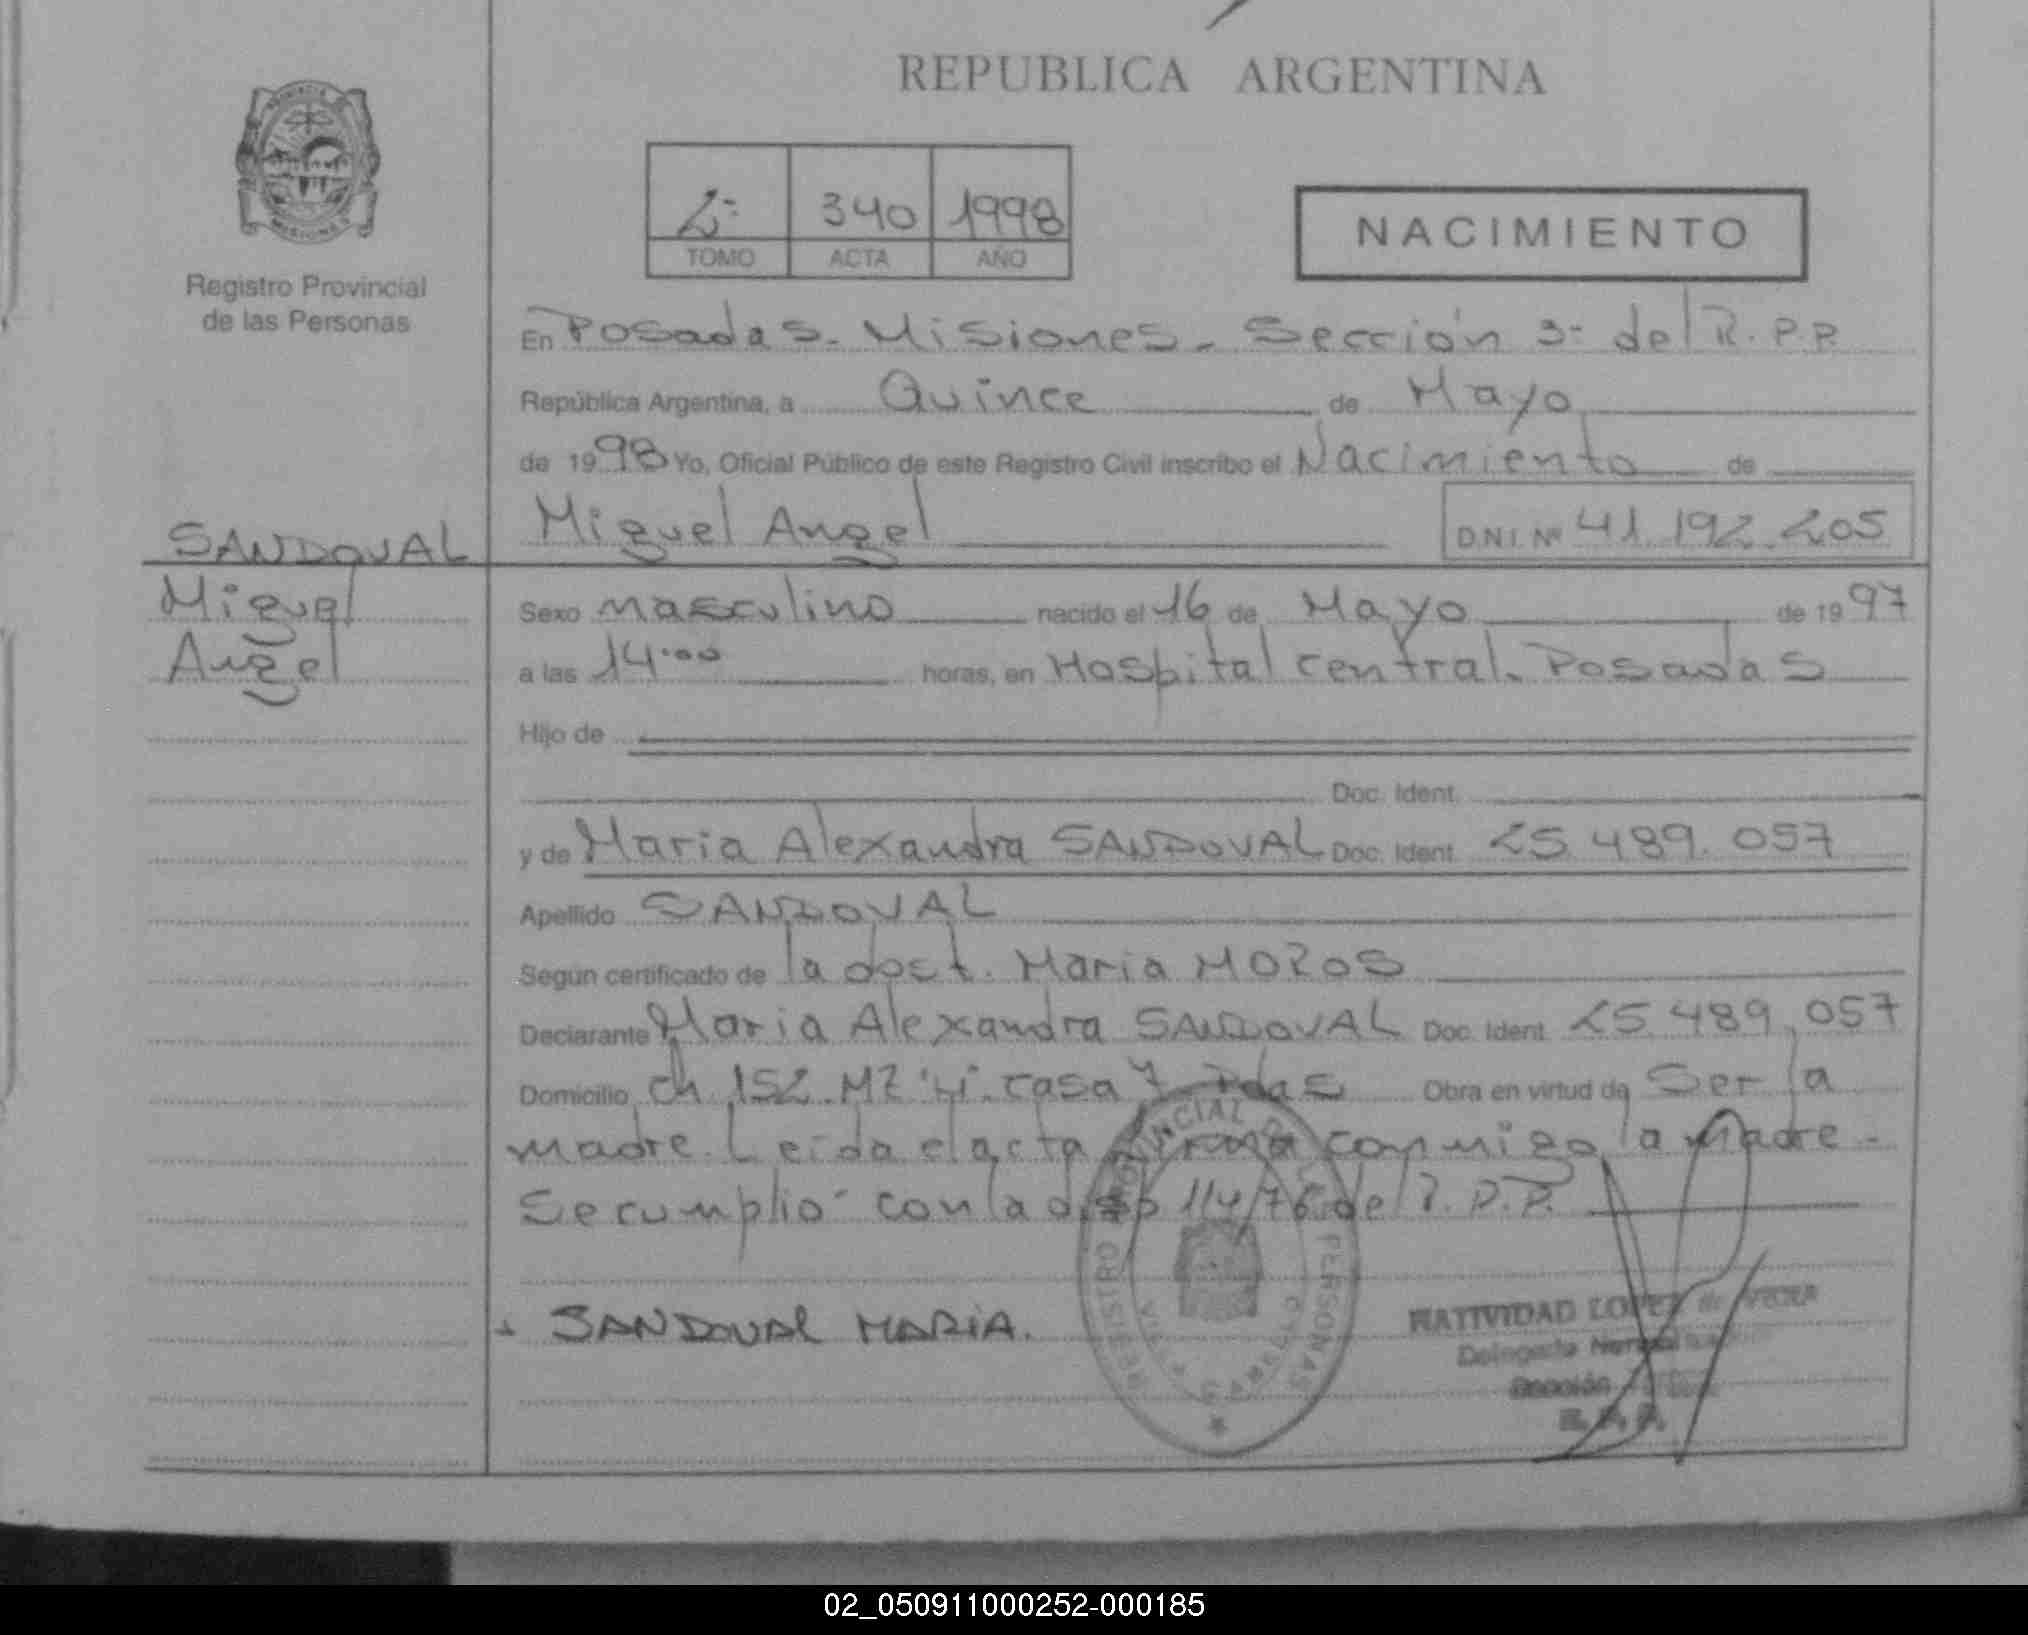 REPUBLICA ARGENTINA
PROVINCIA
MISIONES
Registro Provincial
de las Personas
2º 340 1998
TOMO ACTA AÑO
NACIMIENTO
En Posadas - Misiones - Sección 3º del R.P.P.
República Argentina, a Quince de Mayo
de 1998 Yo, Oficial Público de este Registro Civil inscribo el Nacimiento de
Miguel Angel D.N.I. Nº 41.192.205
SANDOVAL
Miguel
Angel
Sexo masculino nacido el 16 de Mayo de 1997
a las 14.00 horas, en Hospital central. Posadas
Hijo de
Doc. Ident.
y de Maria Alexandra SANDOVAL Doc. Ident. 25.489.057
Apellido SANDOVAL
Según certificado de la doct. Maria MOROS
Declarante Maria Alexandra SANDOVAL Doc. Ident. 25.489.057
Domicilio ch. 152. MZ "H". casa 7 Pdas Obra en virtud de Ser la
madre. Leida el acta firma conmigo la madre -
Se cumplió con la disp 114/76 del R.P.P.
SANDOVAL MARIA.
REGISTRO PROVINCIAL DE LAS PERSONAS
NATIVIDAD LOPEZ de
Delegada
Sección
R.P.P.
02_050911000252-000185